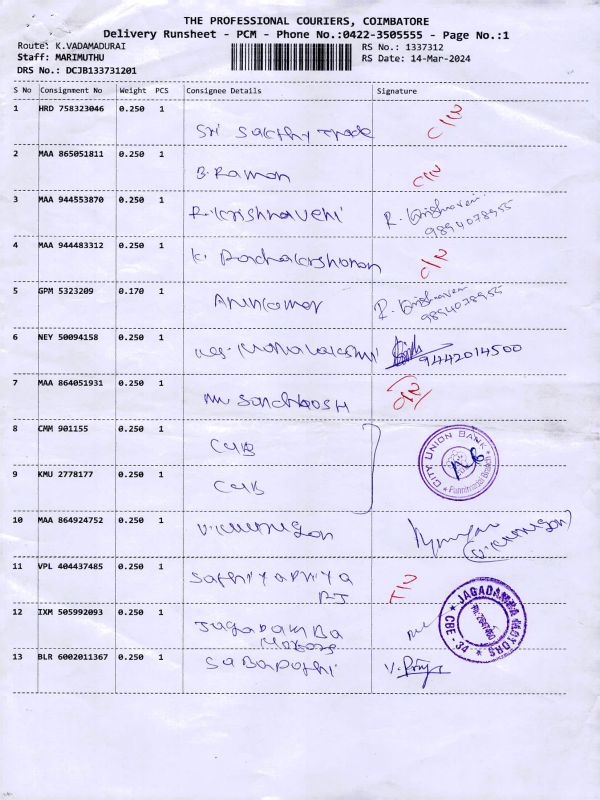 THE PROFESSIONAL COURIERS, COIMBATORE
Delivery Runsheet - PCM - Phone No.:0422-3505555 - Page No.:1
Route: K.VADAMADURAI RS No.: 1337312
Staff: MARIMUTHU RS Date: 14-Mar-2024
DRS No.: DCJB133731201
S No Consignment No Weight PCS Consignee Details Signature
1 HRD 758323046 0.250 1
Sri Sakthy Trade
2 MAA 865051811 0.250 1
B. Raman
3 MAA 944553870 0.250 1
R. Krishnaveni R. Krishnaveni
9894078955
4 MAA 944483312 0.250 1
K. Radhakrishanan
5 GPM 5323209 0.170 1
Arunkumar R. Krishnaveni
9894078955
6 NEY 50094158 0.250 1
9442014500
7 MAA 864051931 0.250 1
Sandhosh
8 CMM 901155 0.250 1
CUB CITY UNION BANK
9 KMU 2778177 0.250 1
CUB
10 MAA 864924752 0.250 1
V. Murugan (V. Murugan)
11 VPL 404437485 0.250 1
Sathiyapriya
RJ
12 IXM 505992093 0.250 1
Jagadamba JAGADAMBA MOTORS
Motors CBE - 34
13 BLR 6002011367 0.250 1
Sabapathi V. Priya